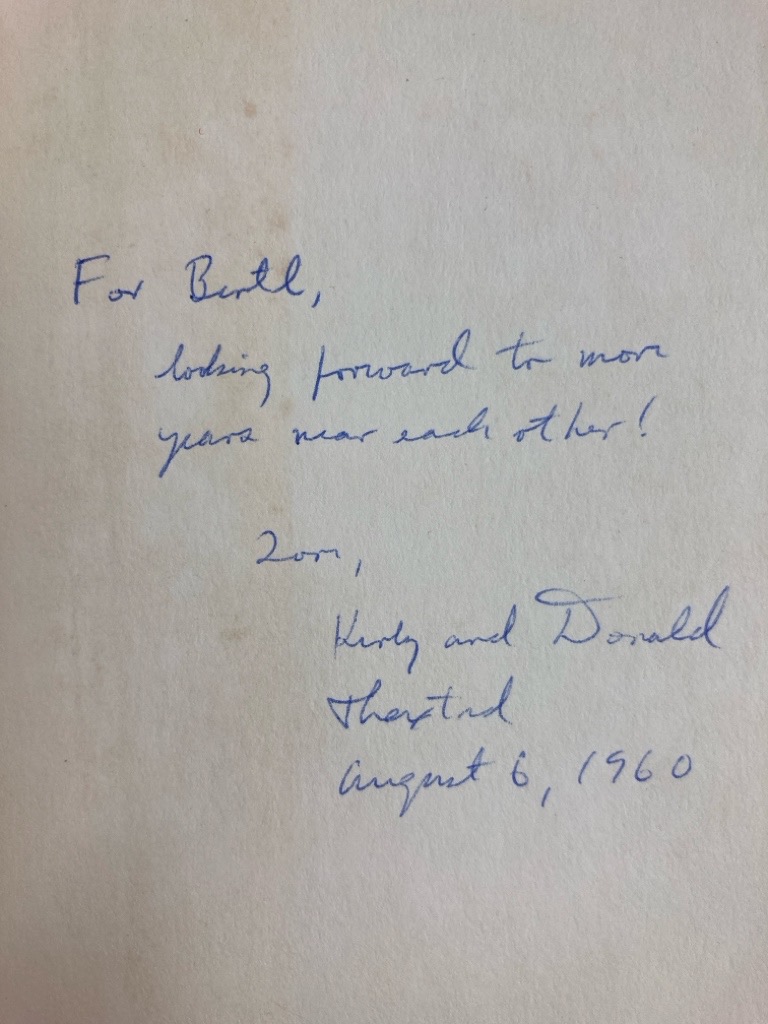 For Bertl,
looking forward to more
years near each other!
Love,
and Donald
August 6, 1960